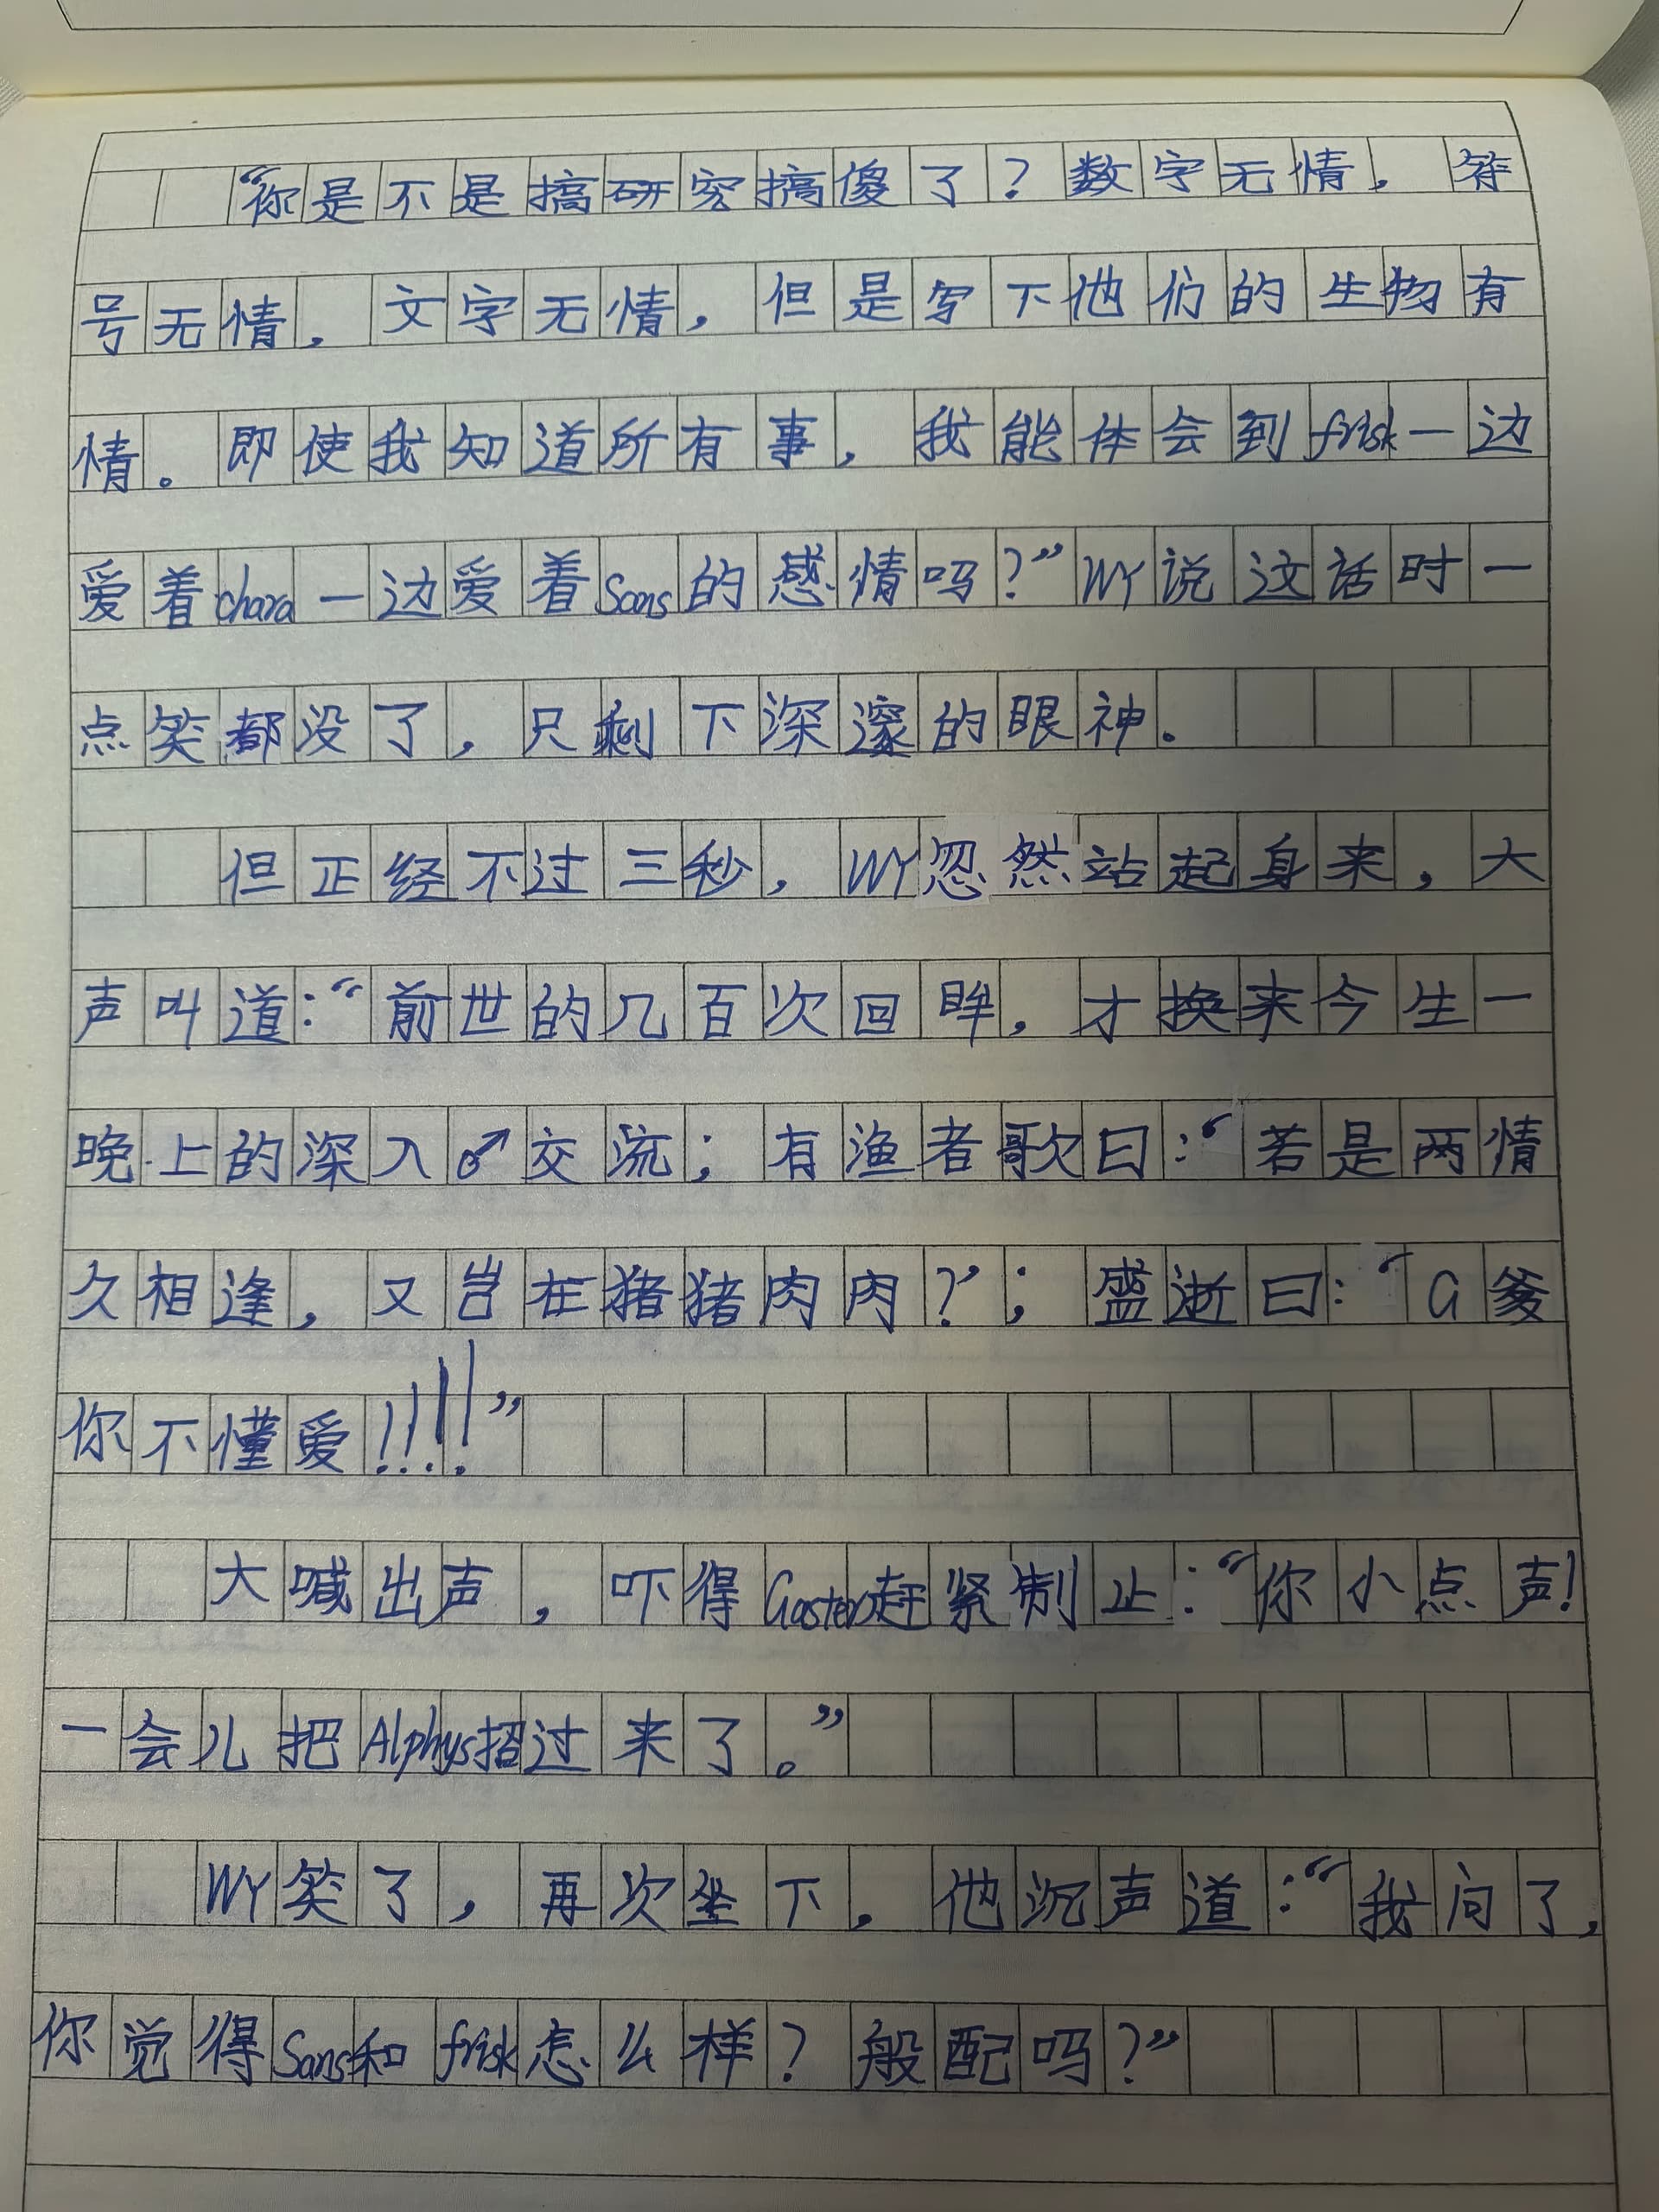 “你是不是搞研究搞傻了？数字无情，符
号无情，文字无情，但是写下他们的生物有
情。即使我知道所有事，我能体会到frisk一边
爱着chara一边爱着Sans的感情吗？”WY说这话时一
点笑都没了，只剩下深邃的眼神。
但正经不过三秒，WY忽然站起身来，大
声叫道：“前世的几百次回眸，才换来今生一
晚上的深入♂交流；有渔者歌曰：‘若是两情
久相逢，又岂在猪猪肉肉？’；盛逝曰：‘G爹
你不懂爱！！！！”
大喊出声，吓得Gaster赶紧制止：“你小点声！
一会儿把Alphys招过来了。”
WY笑了，再次坐下，他沉声道：“我问了，
你觉得Sans和frisk怎么样？般配吗？”